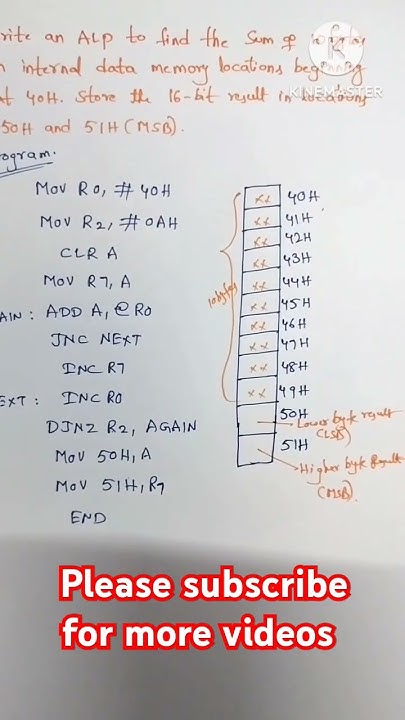 rite an ALP to find the Sum of
n internal data memory locations beginning
at 40H. Store the 16-bit result in locations
50H and 51H (MSB).
KINEMASTER
ogram.
MOV R0, # 40H
MOV R2, # 0AH
CLR A
MOV R7, A
AIN : ADD A, @ R0
JNC NEXT
INC R7
EXT : INC R0
DJNZ R2, AGAIN
MOV 50H, A
MOV 51H, R7
END
10 bytes
xx 40H
xx 41H
xx 42H
xx 43H
xx 44H
xx 45H
xx 46H
xx 47H
xx 48H
xx 49H
50H
Lower byte result
(LSB)
51H
Higher byte Result
(MSB)
Please subscribe
for more videos